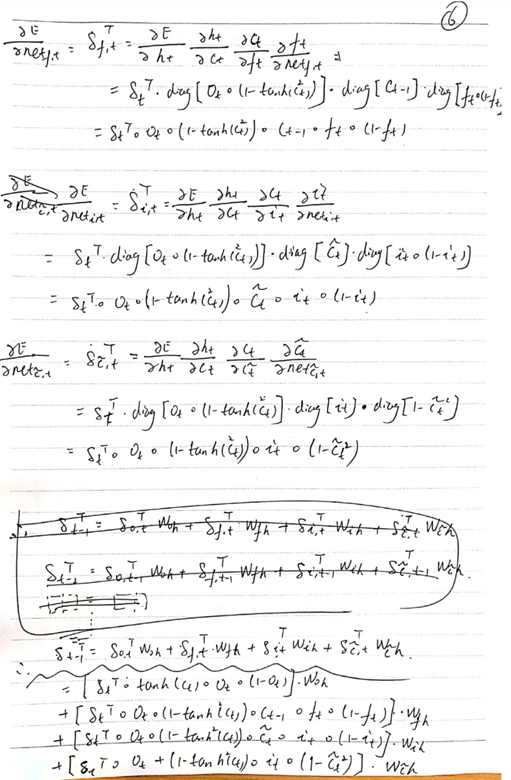 ⑥
∂E/∂net_f,t = δ_f,t^T = ∂E/∂h_t ∂h_t/∂c_t ∂c_t/∂f_t ∂f_t/∂net_f,t
= δ_t^T · diag[o_t ∘ (1-tanh²(c_t))] · diag[c_t-1] · diag[f_t∘(1-f_t
= δ_t^T ∘ o_t ∘ (1-tanh²(c_t)) ∘ c_t-1 ∘ f_t ∘ (1-f_t)
∂E/∂net_c̃,t ∂E/∂net_i,t = δ_i,t^T = ∂E/∂h_t ∂h_t/∂c_t ∂c_t/∂i_t ∂i_t/∂net_i,t
= δ_t^T · diag[o_t ∘ (1-tanh²(c_t))] · diag[c̃_t] · diag[i_t ∘ (1-i_t)]
= δ_t^T ∘ o_t ∘ (1-tanh²(c_t)) ∘ c̃_t ∘ i_t ∘ (1-i_t)
∂E/∂net_c̃,t = δ_c̃,t^T = ∂E/∂h_t ∂h_t/∂c_t ∂c_t/∂c̃_t ∂c̃_t/∂net_c̃,t
= δ_t^T · diag[o_t ∘ (1-tanh²(c_t)] · diag[i_t] · diag[1-c̃_t²]
= δ_t^T ∘ o_t ∘ (1-tanh²(c_t)) ∘ i_t ∘ (1-c̃_t²)
δ_t-1^T = δ_o,t^T W_oh + δ_f,t^T W_fh + δ_i,t^T W_ih + δ_c̃,t^T W_c̃h
δ_t-1^T = δ_o,t-1^T W_oh + δ_f,t-1^T W_fh + δ_i,t-1^T W_ih + δ_c̃,t-1^T W_c̃h.
∴ δ_t-1^T = δ_o,t^T W_oh + δ_f,t^T · W_fh + δ_i,t^T W_ih + δ_c̃,t^T W_c̃h.
= [δ_t^T ∘ tanh(c_t) ∘ o_t ∘ (1-o_t)] · W_oh
+ [δ_t^T ∘ o_t ∘ (1-tanh²(c_t)) ∘ c_t-1 ∘ f_t ∘ (1-f_t)] · W_fh
+ [δ_t^T ∘ o_t ∘ (1-tanh²(c_t)) ∘ c̃_t ∘ i_t ∘ (1-i_t)] · W_ih
+ [δ_t^T ∘ o_t + (1-tanh²(c_t) ∘ i_t ∘ (1-c̃_t²)] · W_c̃h